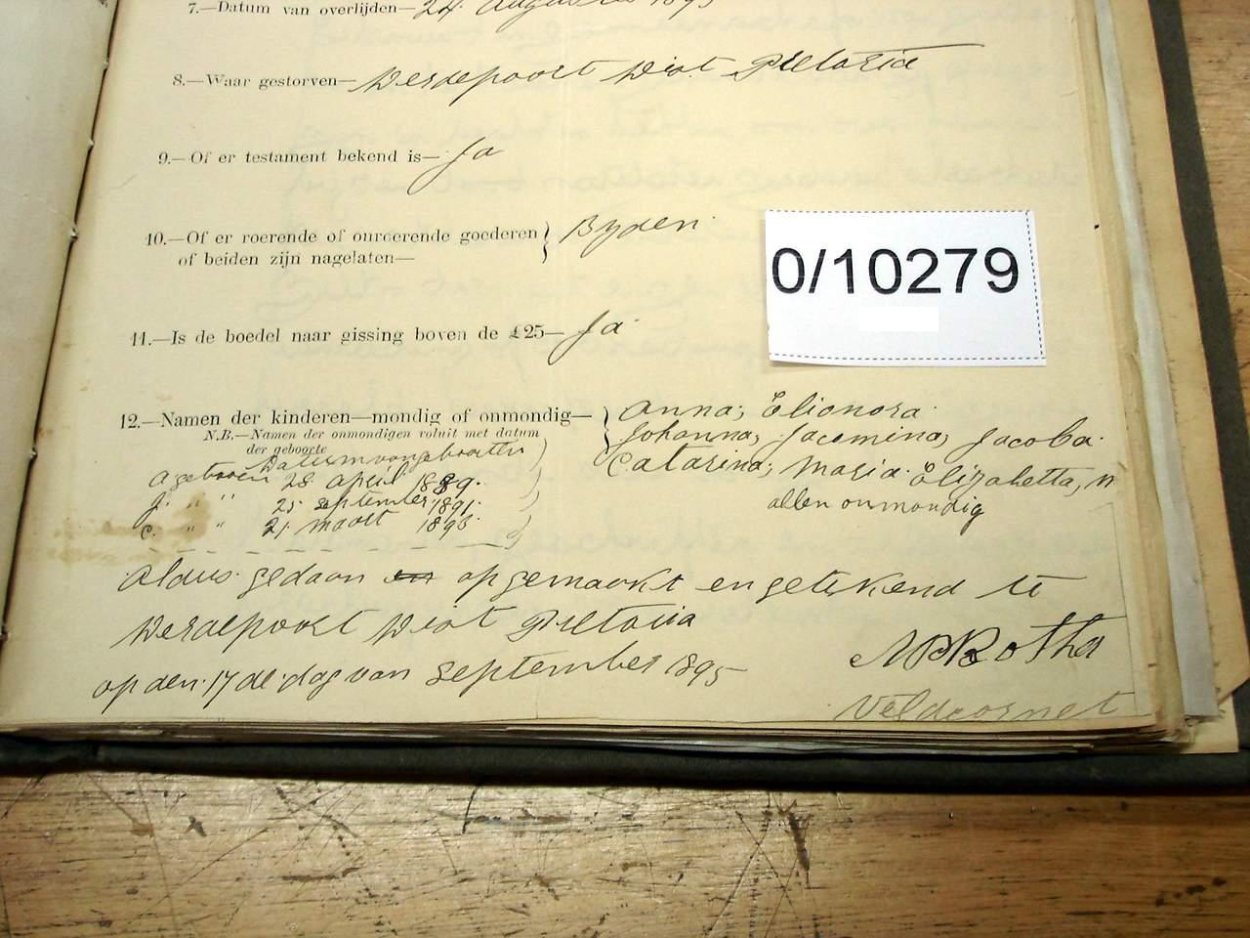 7.—Datum van overlijden— 24 Augustus 1895
8.—Waar gestorven— Derdepoort Dist Pretoria
9.—Of er testament bekend is— Ja
10.—Of er roerende of onroerende goederen } Byden
of beiden zijn nagelaten—
0/10279
11.—Is de boedel naar gissing boven de £25— Ja
12.—Namen der kinderen—mondig of onmondig— } Anna, Elionora
N.B.—Namen der onmondigen voluit met datum
der geboorte
Johanna, Jacomina, Jacoba
Catarina, Maria Elizabetta,
allen onmondig
Datum van geboorten
A geboren 28 April 1889.
J. " " 25 September 1891.
C. " " 21 maart
Aldus gedaan en opgemaakt en getekend te
Derdepoort Dist Pretoria
op den 17 de dag van September 1895
Botha
Veldcornet